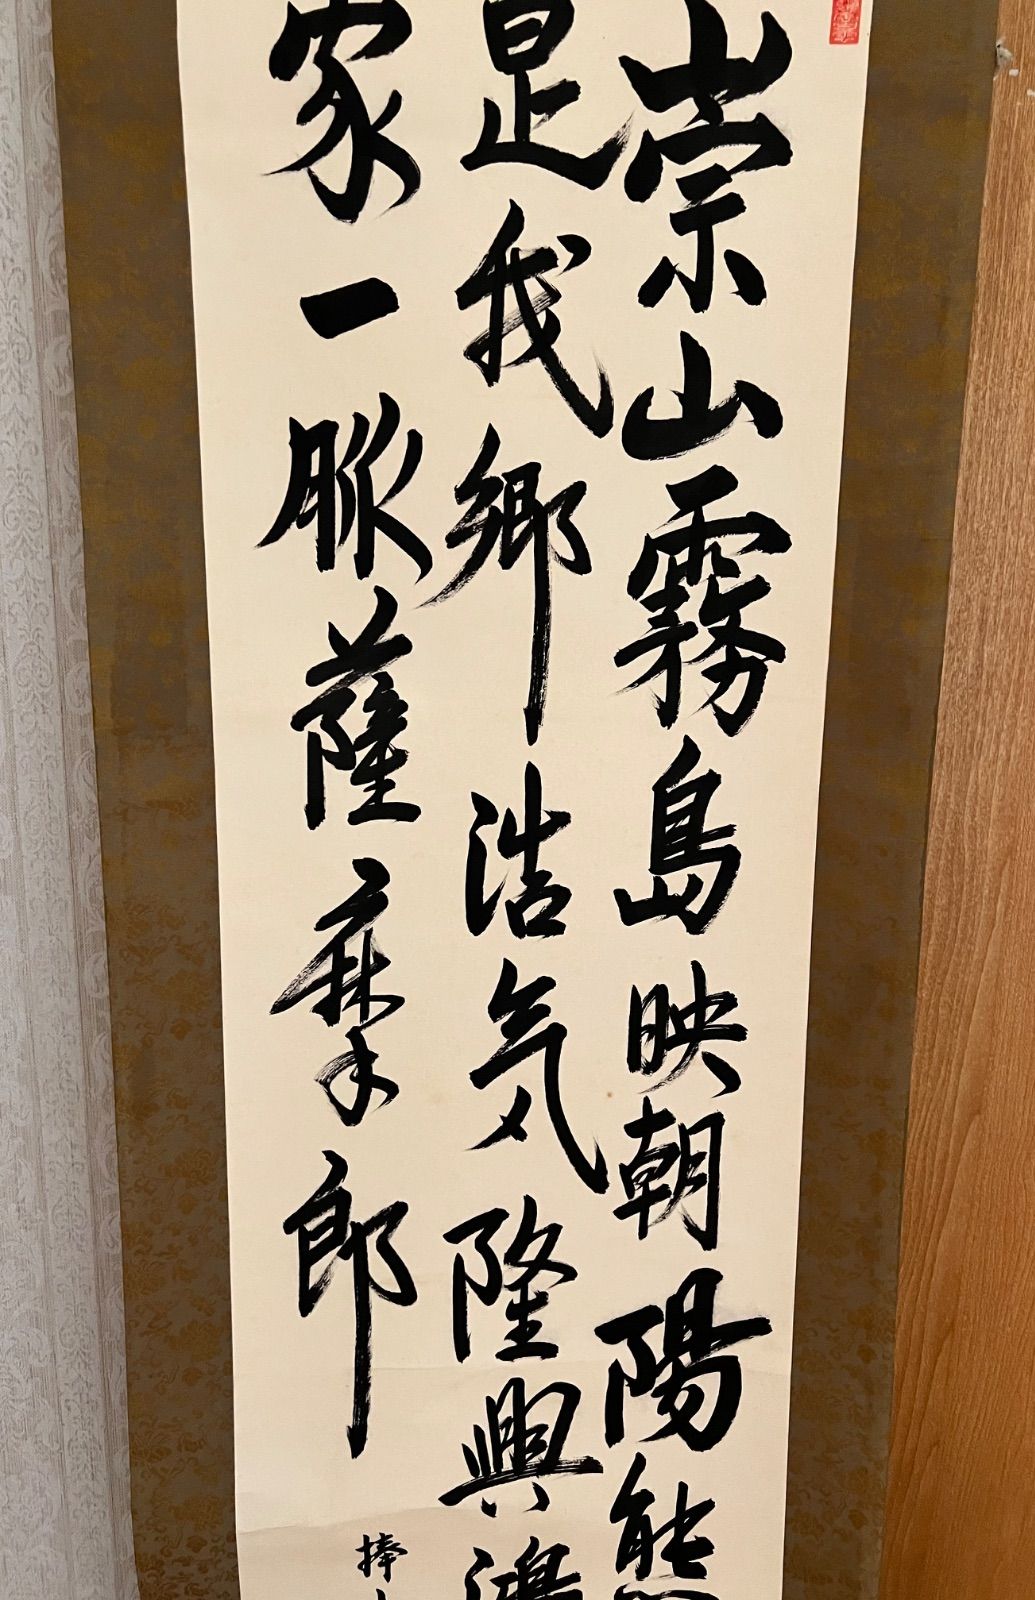 崇山霧島映朝陽熊
是我郷浩気隆興鴻
家一脈薩摩郎
捧